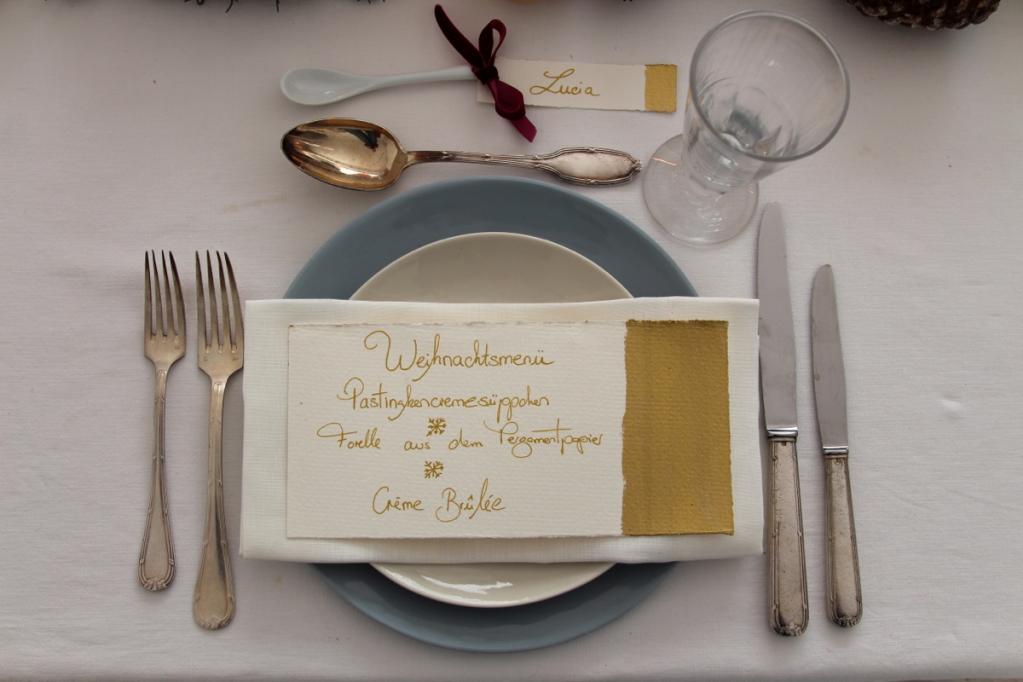 Lucia
Weihnachtsmenü
Pastinakencremesüppchen
Forelle aus dem Pergamentpapier
Crème Brûlée